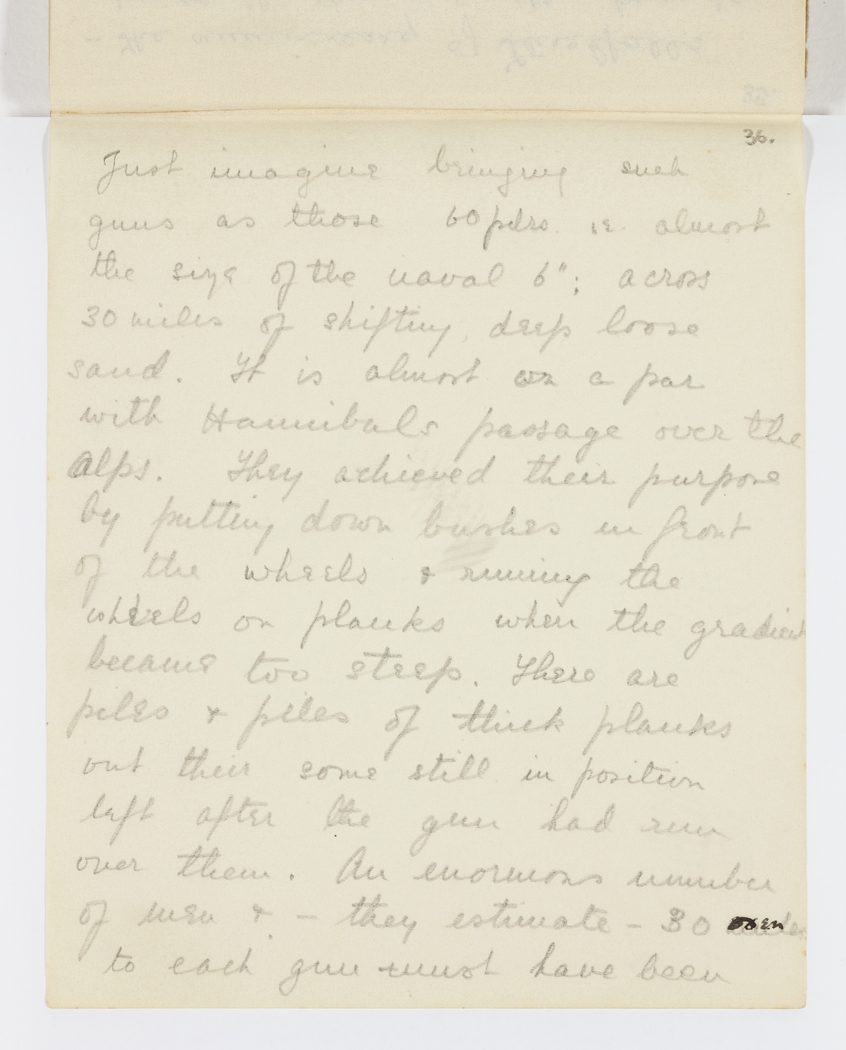 36.
Just imagine bringing such
guns as those 60 pdrs. i.e. almost
the size of the naval 6"; across
30 miles of shifting, deep loose
sand. It is almost on a par
with Hannibals passage over the
Alps. They achieved their purpose
by putting down bushes in front
of the wheels & running the
wheels on planks when the gradient
became too steep. There are
piles & piles of thick planks
out their some still in position
left after the gun had run
over them. An enormous number
of men & - they estimate - 30 oxen
to each gun must have been